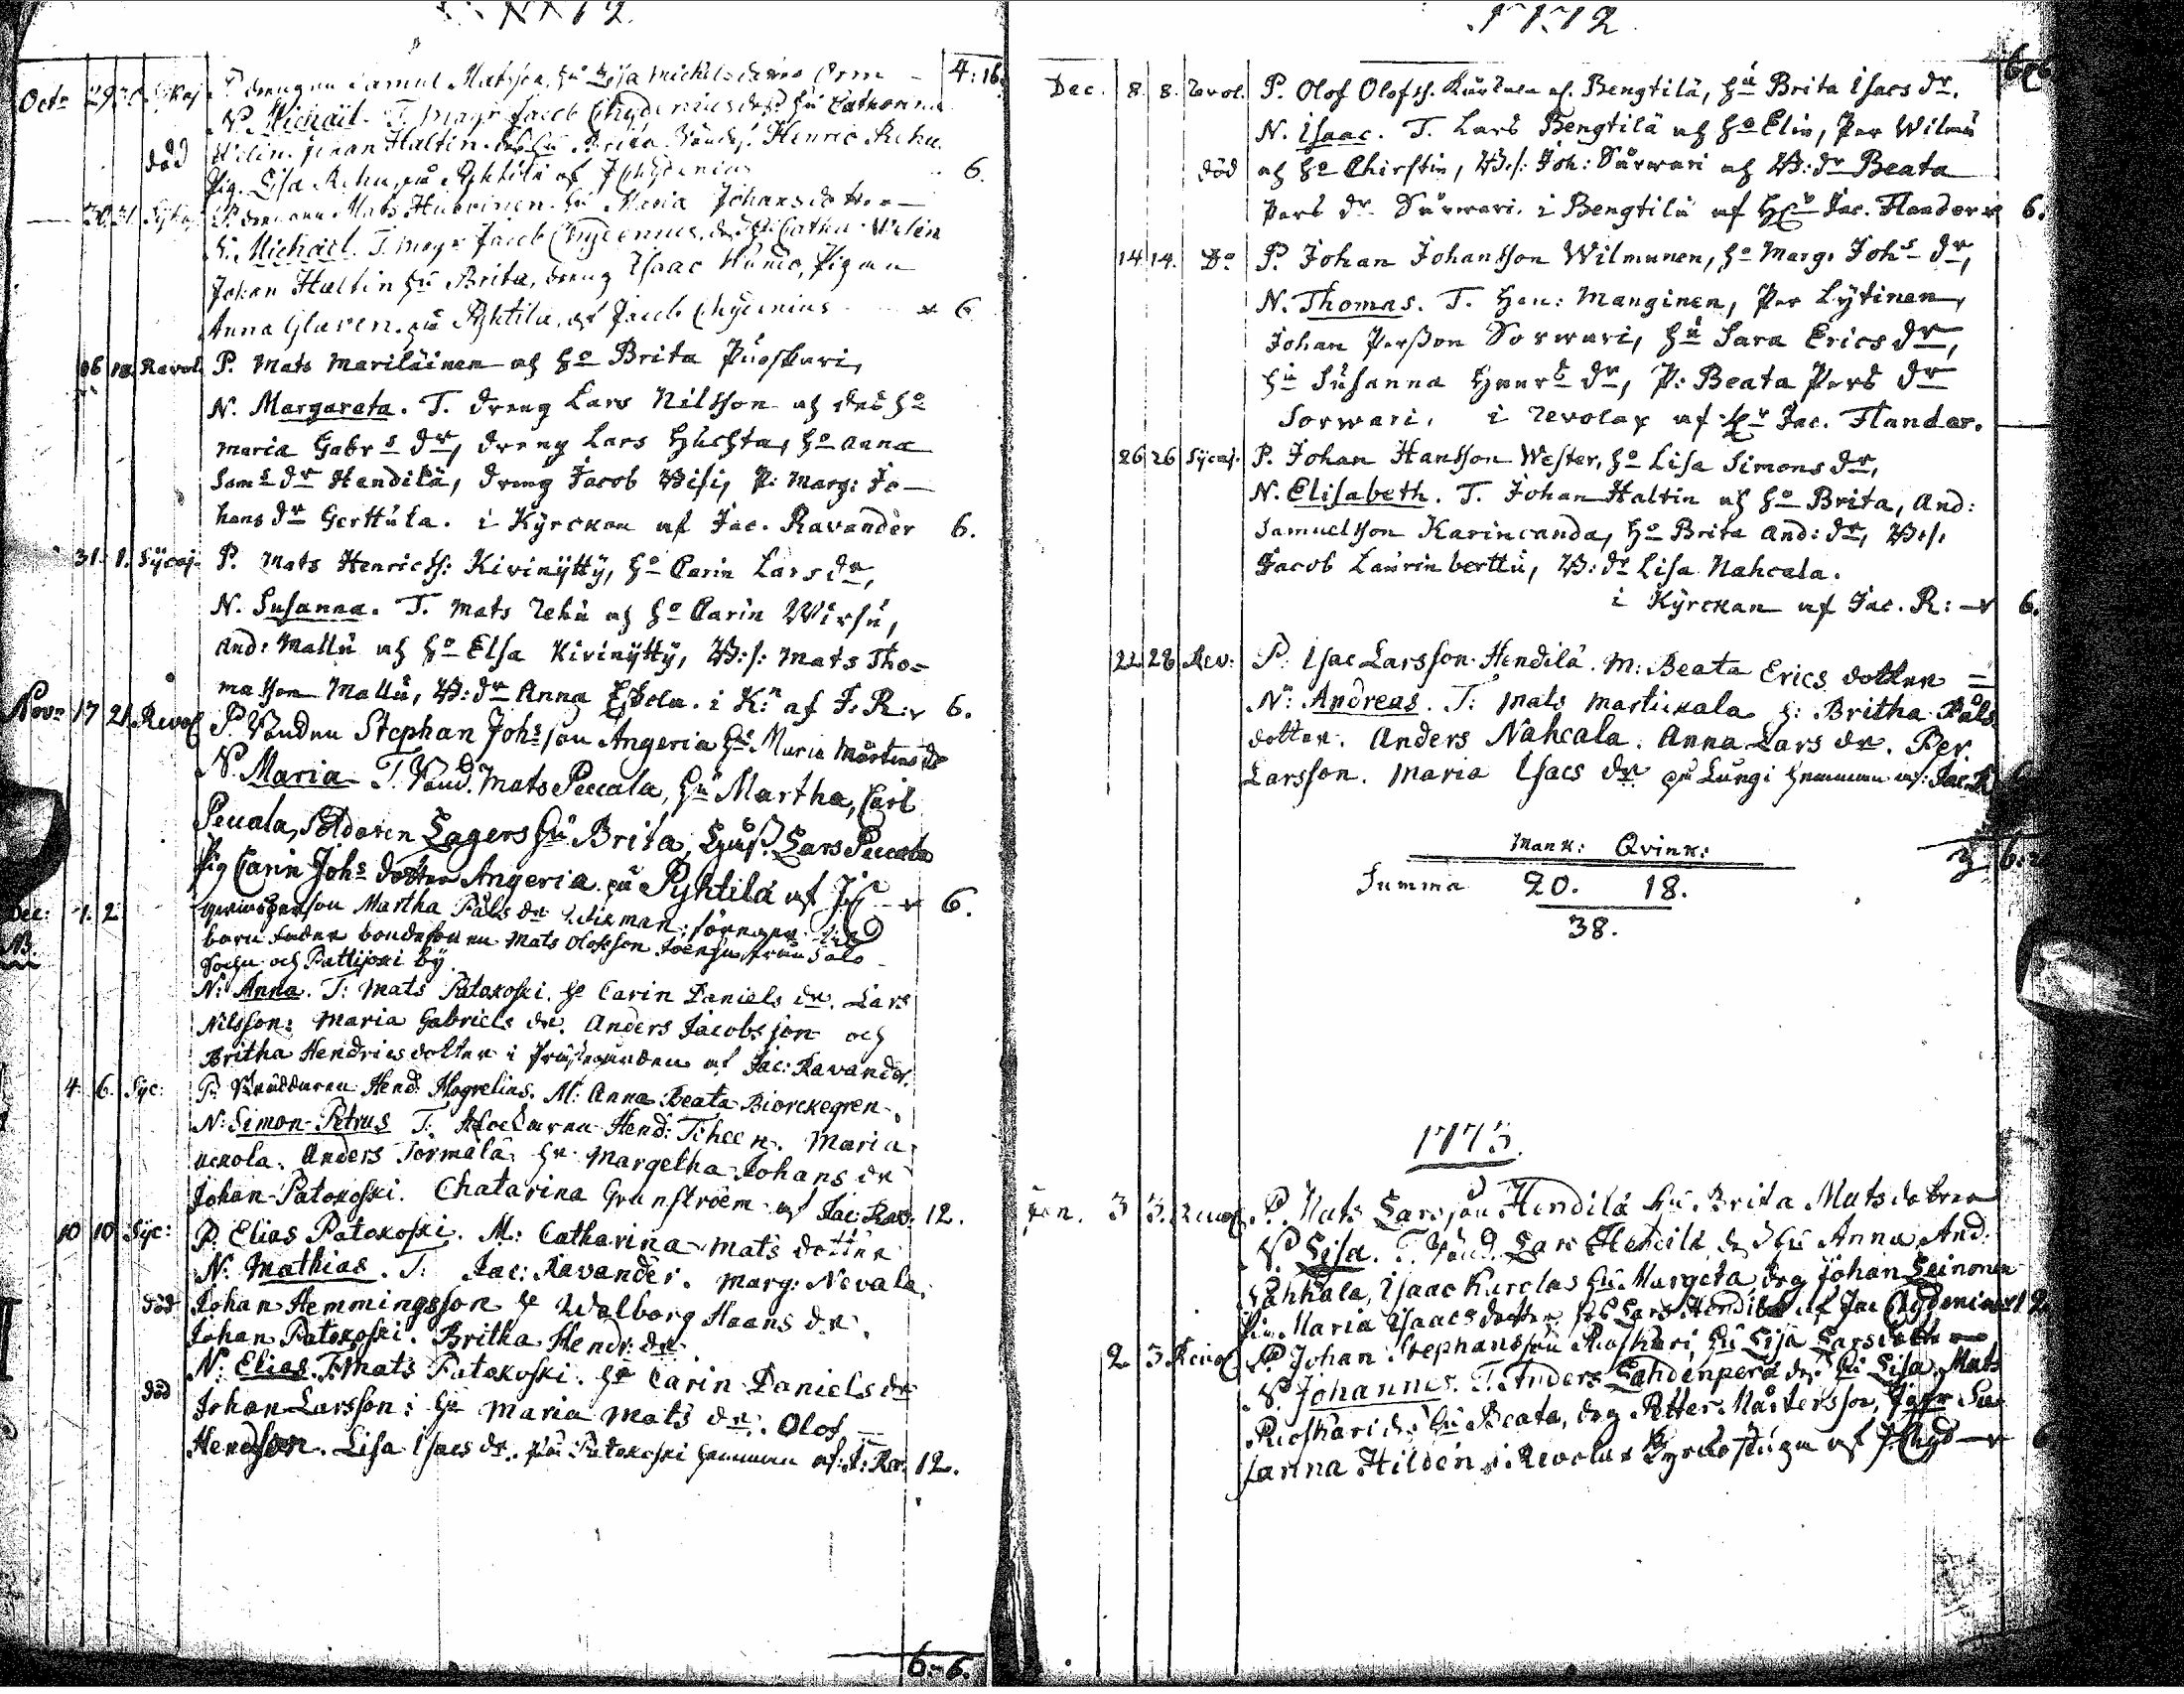 1772.
4:16.
Octr 29 Sikaj. P. drengen Samuel Matsson, hu Lisa Michelsdotter Orm
N. Michaël. T. mayr Jacob Chydenius des hu Catharina
Welin. Johan Haltin hu Brita. Henric Rehu
död
Pig. Lisa Rehu, på Pyhtilä af J Chydenius 6.
30 31 Sykaj. P. Mats Huovinen hu Maria Johansdotter
N. Michaël. T. mayr Jacob Chydenius, des hu Cathar. Welin
Johan Haltin hu Brita, dreng Isaac Pigan
Anna Glaven. på Pyhtilä, af Jacob Chydenius 6
18. Ravol. P. Mats Mariläinen och ho Brita Puoskari,
N. Margareta. T. dreng Lars Nilsson och des ho
Maria Gabrs dr, dreng Lars Huchta, ho Anna
Sams dr Hendilä, dreng Jacob Wisi, P. Marg: Jo-
hans dr Gerttula. i Kyrckan af Jac. Ravander 6.
31. 1. Sycaj. P. Mats Henricss: Kivinytty, ho Carin Lars dr,
N. Susanna. T. Mats Rehu och ho Carin Wirsu,
And: Mallu och ho Elsa Kivinytty, B:s: Mats Tho-
masson Mallu, B:dr Anna Eskola. i K:n af J. R: 6.
Novr 17 21. Revol P. Bonden Stephan Johsson Angeria hu Maria Mårtens dr
N. Maria T. Bond. Mats Peccala, hu Martha, Carl
Peccala, Soldaten Lagers hu Brita, Lars Peccala
Pig Carin Johs dotter Angeria. på Pyhtilä af J C 6.
Dec: 1. 2 Martha Påls dr Wikman: föregger till
barn fader bondesonen Mats Olofsson Joensu från Salo
NB.
Sochn och Pattijoki by.
N: Anna. T: Mats Patokoski. h: Carin Daniels dr. Lars
Nilsson: Maria Gabriels dr. Anders Jacobsson och
Britha Hendricsdotter i Prästegården af Jac: Ravander.
4. 6. Syc: P. Hend: Hogrelius. M: Anna Beata Biorckegren.
N: Simon Petrus T: Hend: Tcheen. Maria
Uckola. Anders Törmälä hu Margetha Johans dr
Johan Patokoski. Chatarina Granstroem af Jac: Rav. 12.
10 10 Syc: P. Elias Patokoski. M: Catharina Mats dotter
N. Mathias. T: Jac: Ravander. Marg: Nevala.
död Johan Hemmingsson h: Walborg Haans dr.
Johan Patokoski. Britha Hendr: dr
N: Elias. T: Mats Patokoski. hu Carin Daniels dr
död Johan Larsson: hu Maria Mats dr. Olof
Hendsson. Lisa Isacs dr. på Patokoski hemman af: J: Rav. 12.
6.-6.
1772.
Dec. 8. 8. Revol. P. Olof Olofss. af. Bengtilä, hu Brita Isacs dr.
N. Isaac. T. Lars Bengtilä och ho Elin, Per Wilmi
död och ho Chirstin, B:s: Joh: Sårwari och B:dr Beata
Pers dr Sårwari. i Bengtilä af Hr Jac. Flander 6.
14 14. Do P. Johan Johansson Wilmunen, ho Marg. Johs dr,
N. Thomas. T. Hen: Manginen, Per Lytinen,
Johan Persson Sorwari, hu Sara Erics dr,
hu Susanna Henrs dr, P: Beata Pers dr
Sorwari. i Revolax af Hr Jac. Flander.
26 26 Sycaj. P. Johan Hansson Wester, ho Lisa Simons dr,
N. Elisabeth. T. Johan Haltin och ho Brita, And:
Samuelsson Karincanda, ho Brita And: dr, B:s:
Jacob Laurinberttu, B:dr Lisa Nahcala.
i Kyrckan af Jac. R: 6.
22 28 Rev: P. Isac Larsson Hendilä. M: Beata Erics dotter
N: Andreas. T: Mats Martickala h: Britha Påls
dotter. Anders Nahcala. Anna Lars dr. Per
Larsson. Maria Isacs dr på Lungi hemman af: Jac. R 6
Mank: Qvink:
Summa 20. 18.
38.
1773.
Jan. 3 3. Revol. P. Mats Larsson Hendilä hu Brita Matsdotter
N. Lisa. T. Bond. Lars Hendilä, des hu Anna, And.
Nahkala, Isaac Kurclas hu Margeta, drg Johan Leinonen
Pig. Maria Isaacsdotter, Lars Hendilä af Jac Chydenius 12
2 3 Revol P. Johan Stephansson Puoskari, hu Lisa Larsdotter
N. Johannes. T. Anders Lahdenperä des hu Lisa, Mats
Puoskari des hu Beata, drg Petter Mårtensson, Jgfr Su-
sanna Hilden, i Revolax Kyrckostuga af J Chyd 6